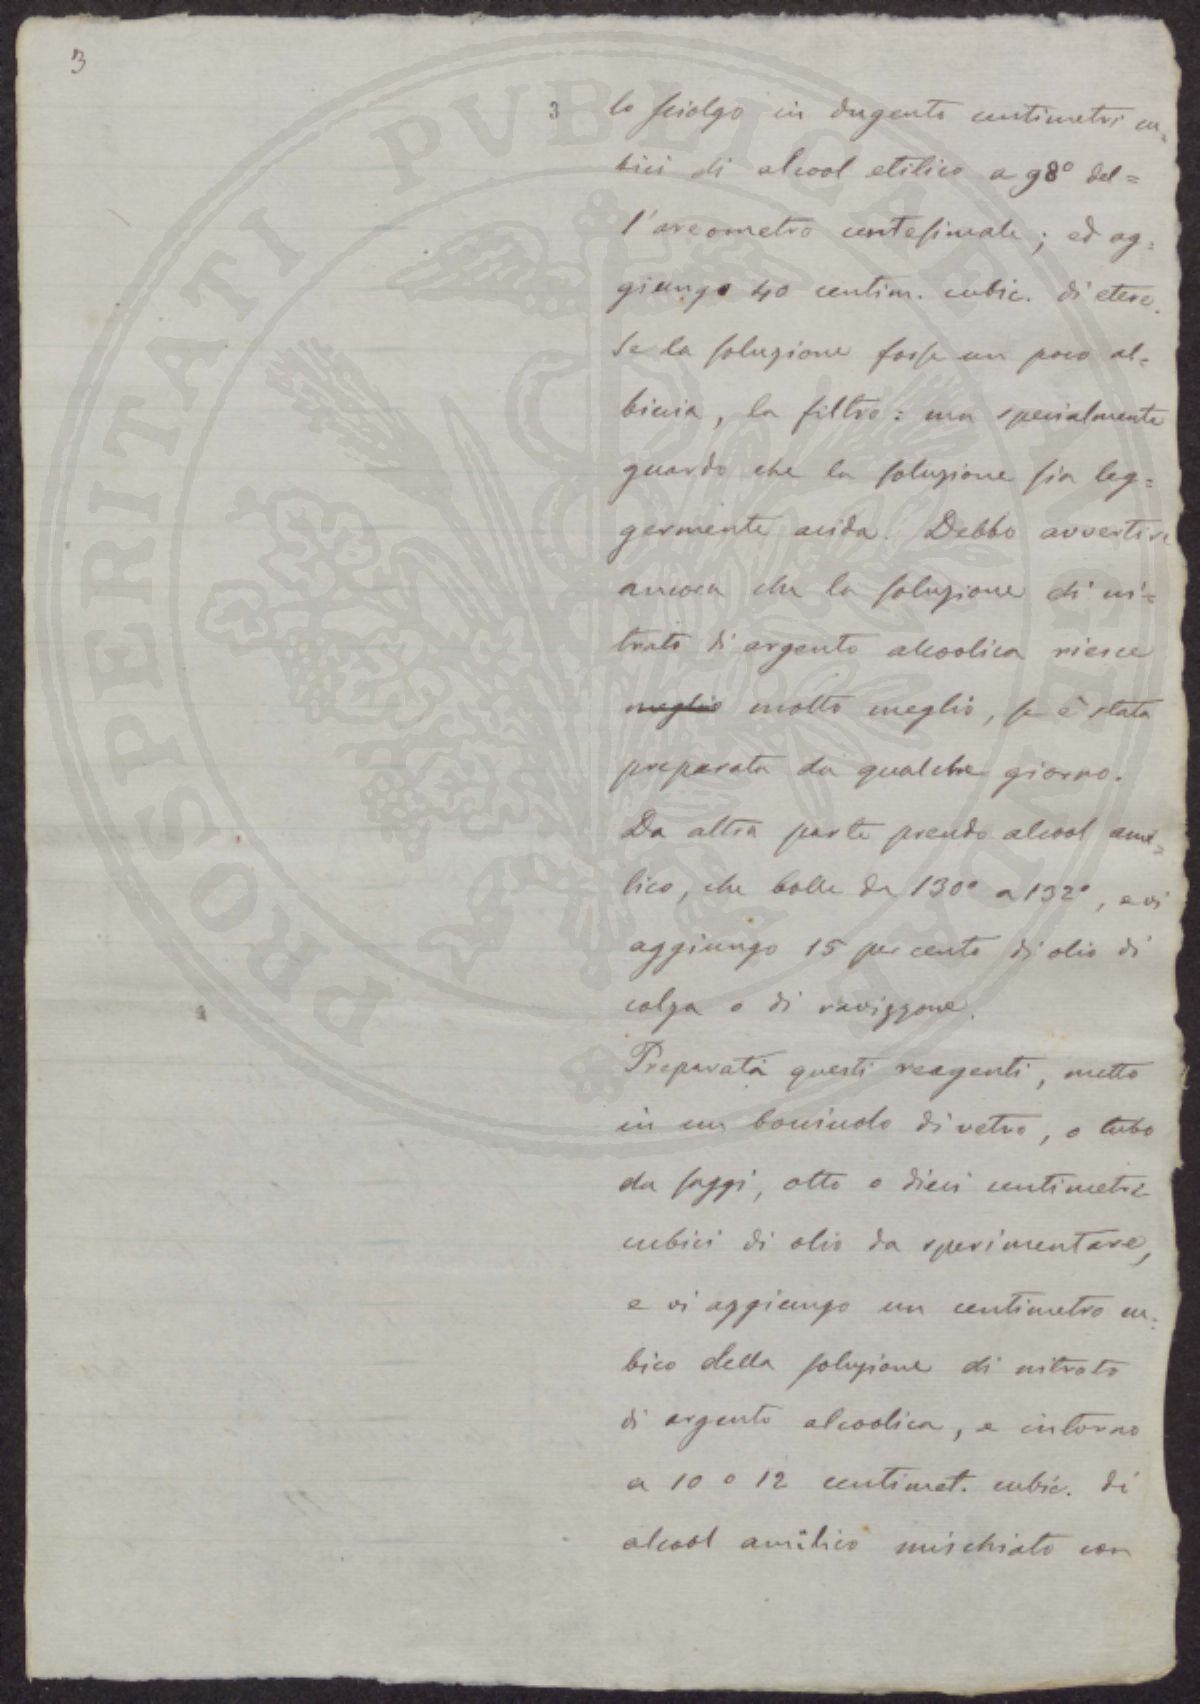 3
3
lo sciolgo in dugento centimetri cu=
bici di alcool etilico a 98° del=
l'areometro centesimale; ed ag=
giungo 40 centim. cubic. di etere.
Se la soluzione fosse un poco al=
biccia, la filtro: ma specialmente
guardo che la soluzione sia leg=
germente acida. Debbo avvertire
ancora che la soluzione di ni=
trato di argento alcoolica riesce
meglio molto meglio, se è stata
preparata da qualche giorno.
Da altra parte prendo alcool ami=
lico, che bolle da 130° a 132°, e vi
aggiungo 15 per cento di olio di
colza o di ravizzone.
Preparata questi reagenti, metto
in un bocciuolo di vetro, o tubo
da saggi, otto o dieci centimetri
cubici di olio da sperimentare,
e vi aggiungo un centimetro cu=
bico della soluzione di nitrato
di argento alcoolica, e intorno
a 10 o 12 centimet. cubic. di
alcool amilico mischiato con
PROSPERITATI PVBLICAE AVGENDAE